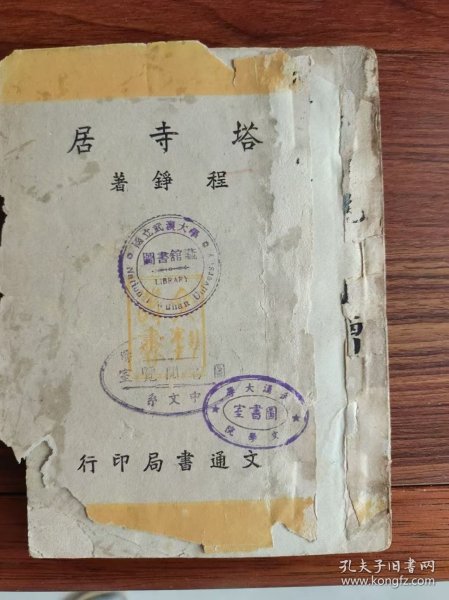 塔寺居
程錚著
國立武漢大學
圖書館藏
LIBRARY
National Wuhan University
中文系
武漢大學
圖書室
文學院
文通書局印行
孔夫子旧书网
www.kongfz.com